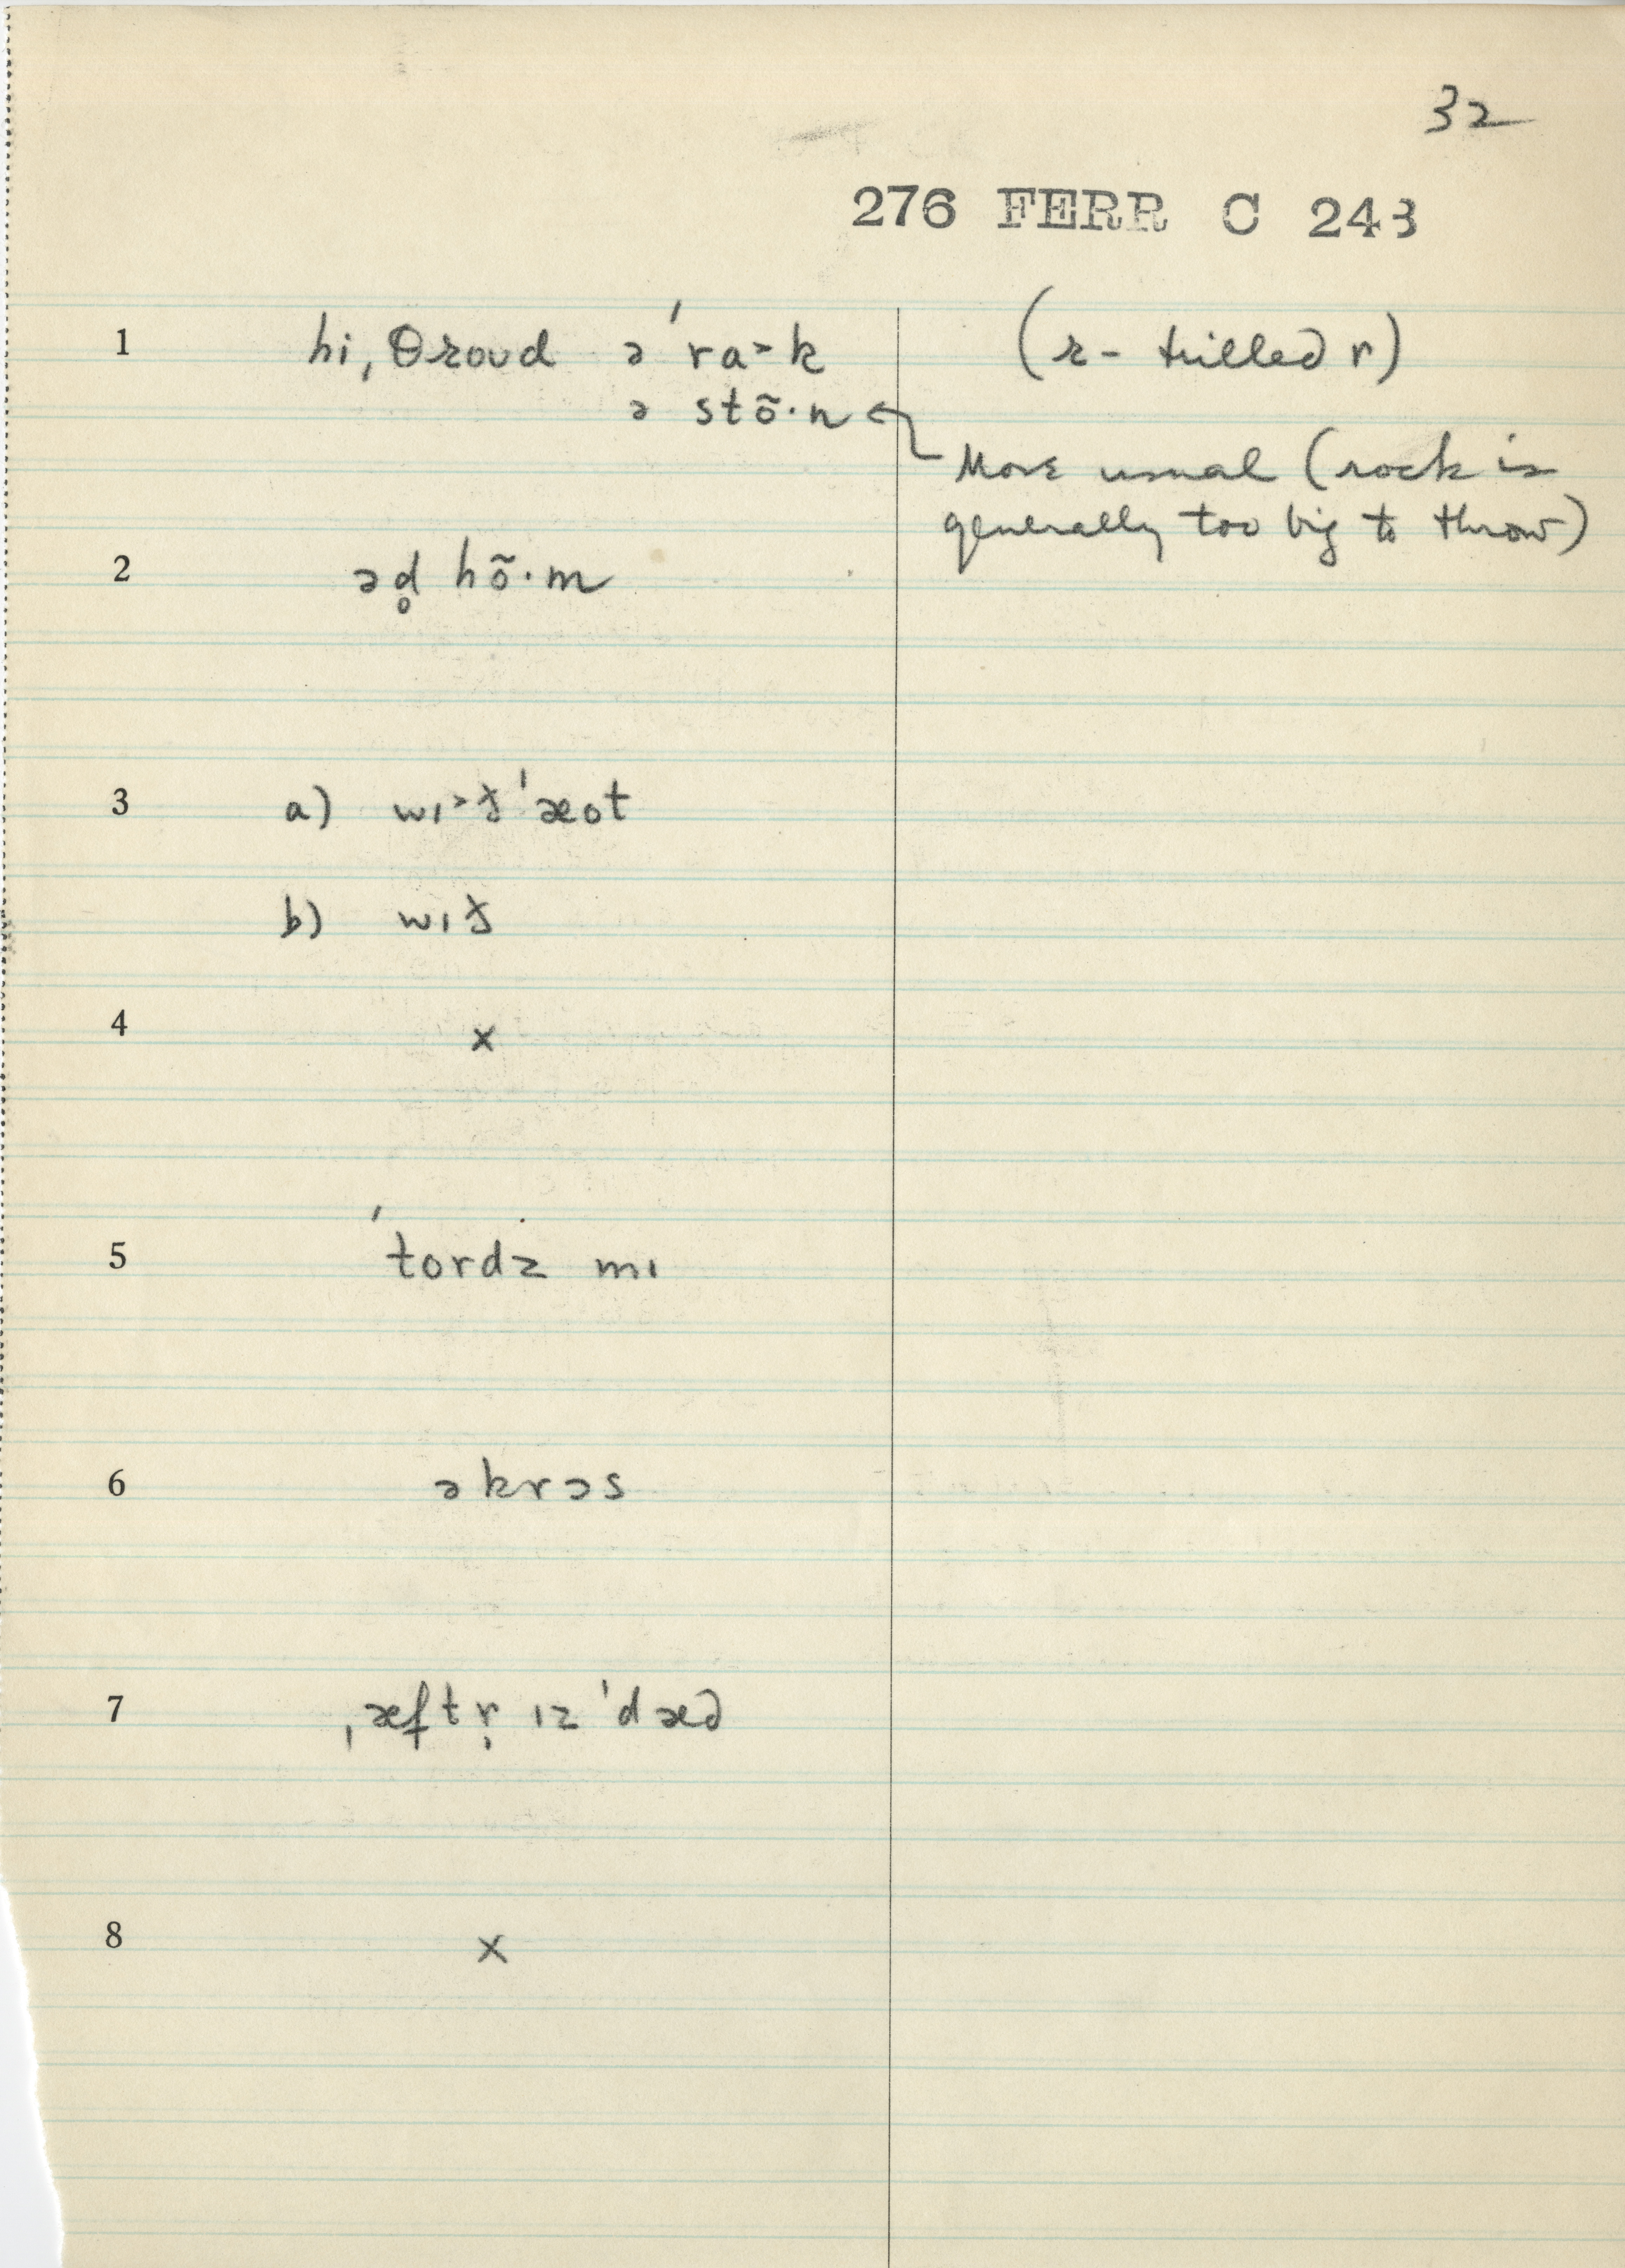 32
276 FERR C 243
1 hi, θɹoud ə ˈra˃k (ɹ - trilled r)
ə stõ·n ←
More usual (rock is
generally too big to throw)
2 əd̥ hõ·m
3 a) wɪ˃ð ˈæot
b) wɪð
4 x
5 ˈtordz mɪ
6 əkrɔs
7 ˌæftr̩ ɪz ˈdæd
8 x